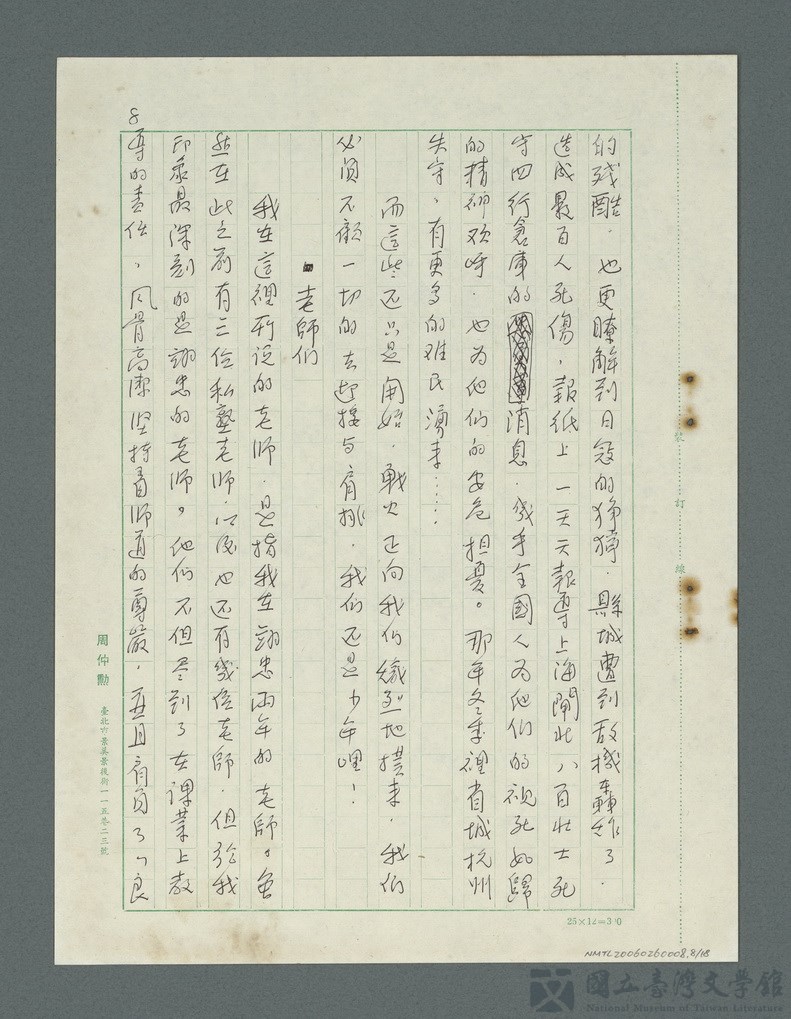 的残酷．也更瞭解到日寇的猙獰．縣城遭到敌机轟炸了．
造成數百人死傷，報紙上一天天報導上海閘北八百壯士死
守四行倉庫的消息．幾乎全國人為他们的視死如歸
的精神欢呼．也为他们的安危担憂。那年冬季裡省城杭州
失守，有更多的难民湧来……
而這些还只是開始．戰火正向我们熾烈地撲来．我们
必須不顧一切的去迎接与肩挑．我们还是少年哩！
老師们
我在這裡所说的老师．是指我在翊忠兩年的老師。虽
然在此之前有三位私塾老师．以後也还有幾位老師．但给我
印象最深刻的是翊忠的老师。他们不但尽到了在課業上教
導的責任，风骨高潔坚持着师道的尊嚴．並且肩負了「良
8
周仲勳
臺北六景美景後街一一五巷二三號
裝
訂
線
25×12=300
NMTL20060260008,8/18
國立臺灣文學館
National Museum of Taiwan Literature